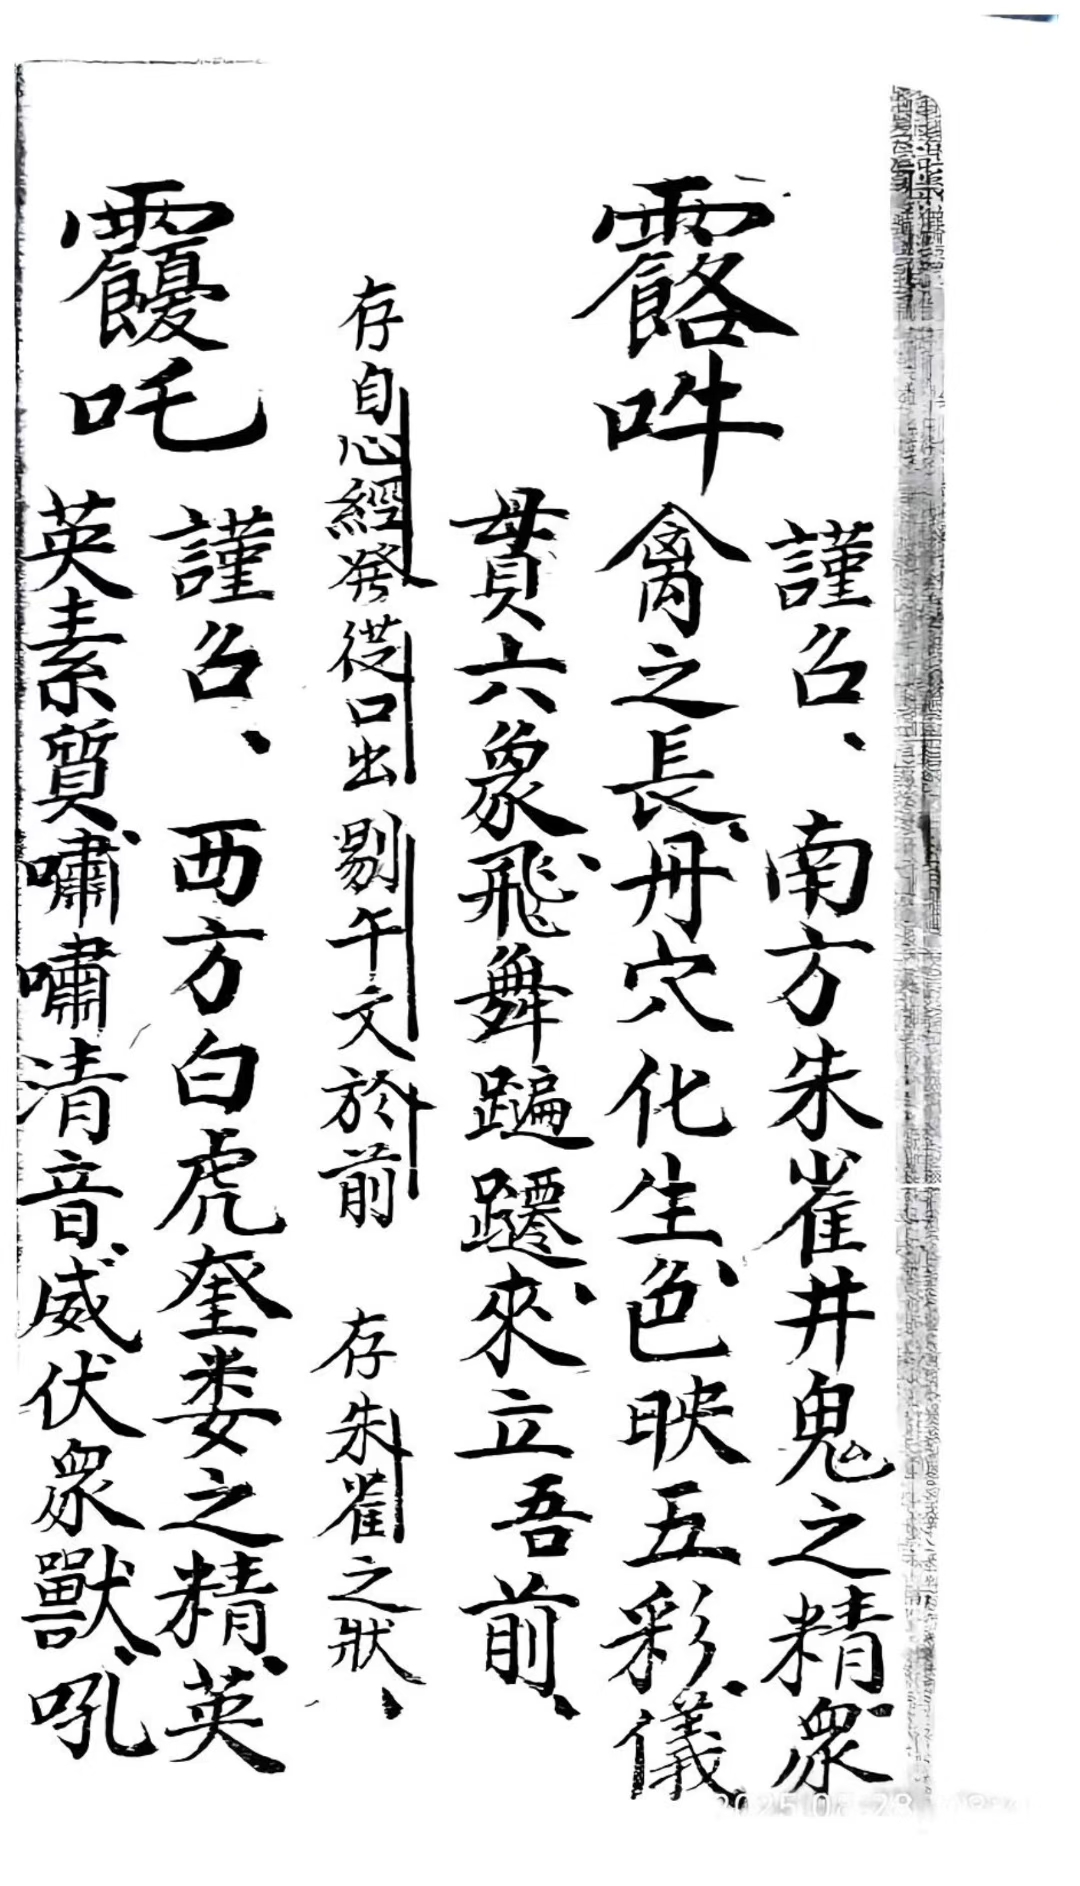 謹召、南方朱雀井鬼之精、眾
吽禽之長、丹穴化生、色映五彩、儀
貫六象、飛舞蹁躚、來立吾前、
存自心經發從口出剔午文於前 存朱雀之狀、
謹召、西方白虎奎婁之精、英
吒英素質、嘯嘯清音、威伏眾獸、吼